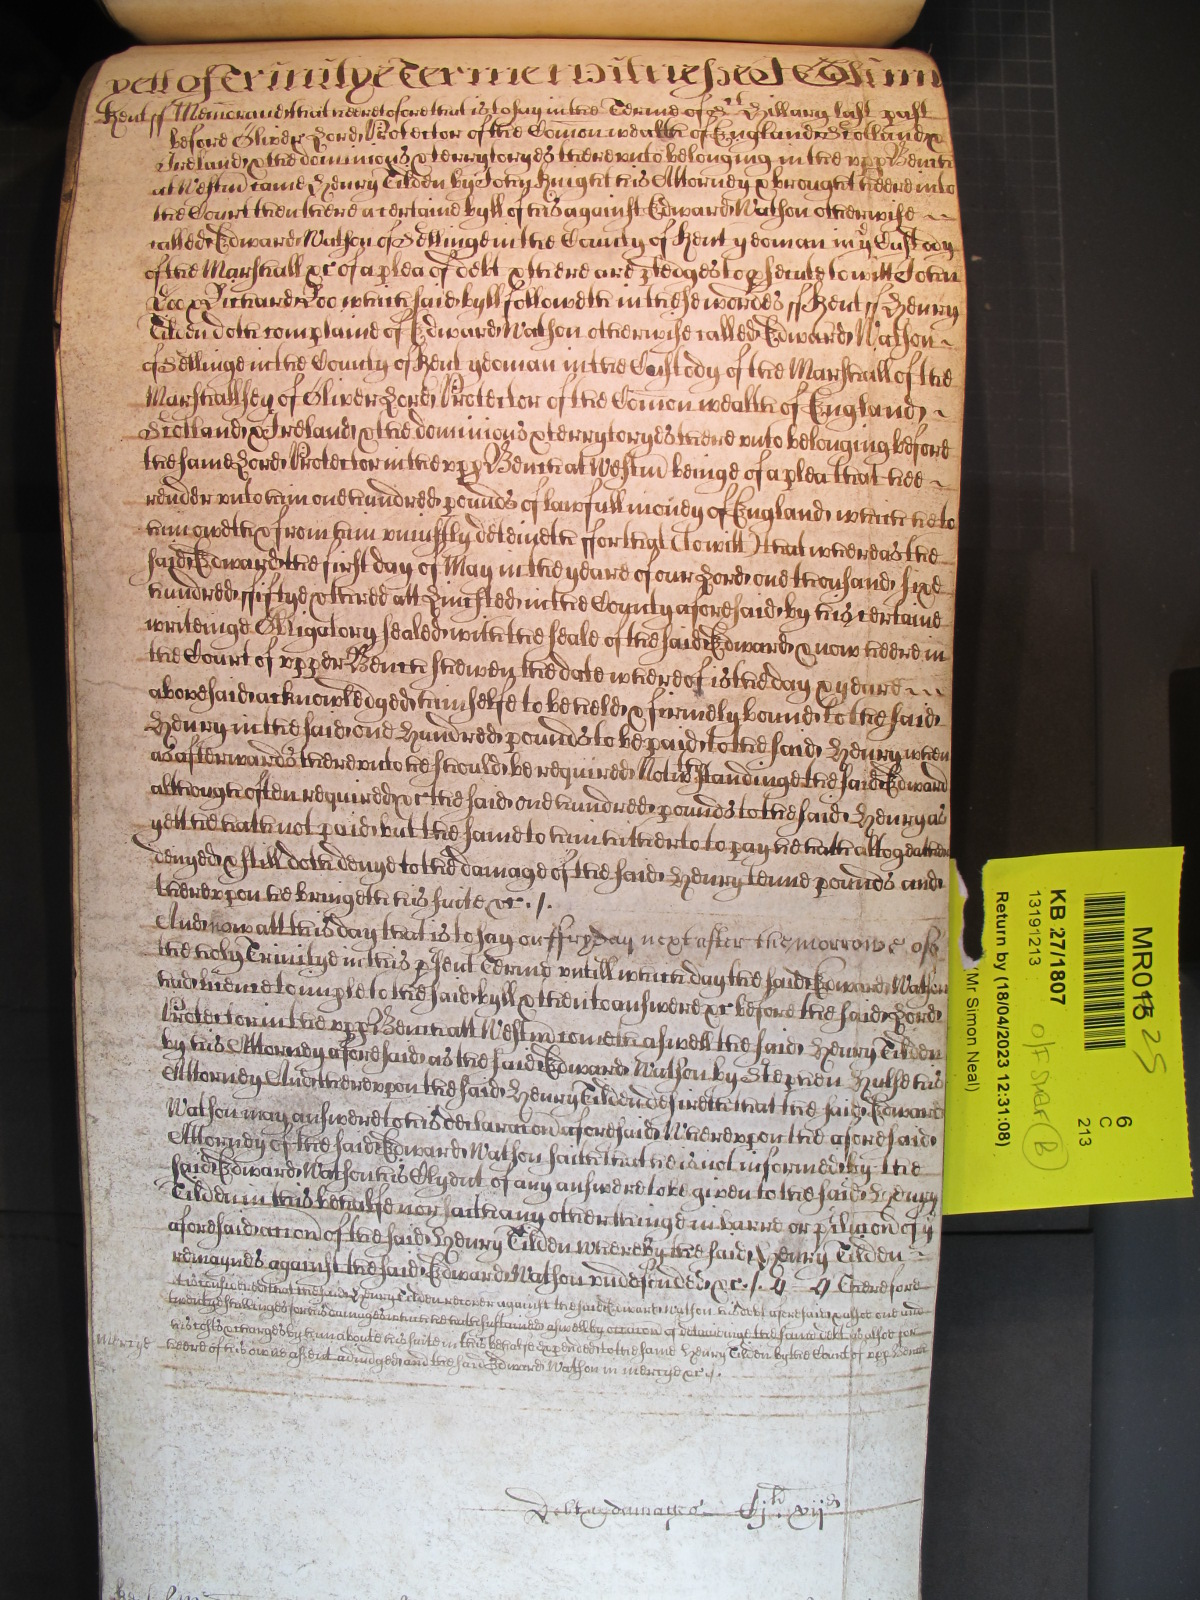 yett of Trinitye Terme witnesseth
Kent ss Memorandu that heretofore that is to say in the Terme of St Hillary last past
before Oliver Lord Protector of the Comon wealth of England Scotland &
Ireland & the dominions & terrytoryes thereunto belonging in the upp Bench
at Westm came Henry Tilden by John Knight his Attorney & brought heere into
the Court then there a certaine byll of his against Edward Watson otherwise
called Edward Watson of Sellinge in the County of Kent yeoman in ye Custody
of the Marshall &c of a plea of debt & there are pledges to psecute to witt John
Doo & Richard Roo which said byll followeth in these wordes ss Kent ss Henry
Tilden doth complaine of Edward Watson otherwise called Edward Watson
of Sellinge in the County of Kent yeoman in the Custody of the Marshall of the
Marshallsey of Oliver Lord Protector of the Comon wealth of England
Scotland & Ireland & the dominions & terrytoryes there unto belonging before
the same Lord Protector in the upp Bench at Westm beinge of a plea that hee
render unto him one hundred pounds of lawfull money of England which he to
him oweth & from him uniustly deteineth ffor that (to witt) that whereas the
said Edward the first day of May in the yeare of our Lord one thousand sixe
hundred ffiftye & three att in the County aforesaid by his certaine
writeinge Obligatory sealed with the seale of the said Edward & now heere in
the Court of upper Bench shewen the date whereof is the day & yeare
abovesaid acknowledged himselfe to be held & firmely bound to the said
Henry in the said one Hundred pounds to be paid to the said Henry when
as afterwards thereunto he should be required Notwthstandinge the said Edward
although often required &c the said one hundred pounds to the said Henry as
yett he hath not paid but the same to him hitherto to pay he hath altogeather
denyed & still doth denye to the damage of the said Henry tenne pounds and
thereupon he bringeth his suite &c ./.
And now att this day that is to say on ffryday next after the morrowe of
the holy Trinitye in this psent Terme untill which day the said Edward Watson
had licence to imple to the said byll & then to answere &c before the said Lord
Protector in the upp Bench att Westm cometh aswell the said Henry Tilden
by his Attorney aforesaid as the said Edward Watson by Stephen Hulse his
Attorney And thereupon the said Henry Tilden desireth that the said Edward
Watson may answere to his declaracon aforesaid Whereupon the aforesaid
Attorney of the said Edward Watson saith that he is not informed by the
said Edward Watson his Clyent of any answere to be given to the said Henry
Tilden in this behalfe nor saith any other thinge in barre or pclucon of ye
aforesaid accon of the said Henry Tilden whereby the said Henry Tilden
remaynes against the said Edward Watson undefended &c ./. Therefore
it is considered that the said Henry Tilden recover against the said Edward Watson his debt aforesaid & alsoe one and
twentye shillinges for his damages which he hath susteined aswell by occacon of deteininge the same debt as alsoe for
his costs & charges by him about his suite in this behalfe expended to the same Henry Tilden by the Court of upp Bench
mercye heere of his owne assent adiudged and the said Edward Watson in mercye &c ./.
Debt & damages
MR01 25
KB 27/1807
13191213
Return by (18/04/2023 12:31:08)
(Mr Simon Neal)
6
C
213
B